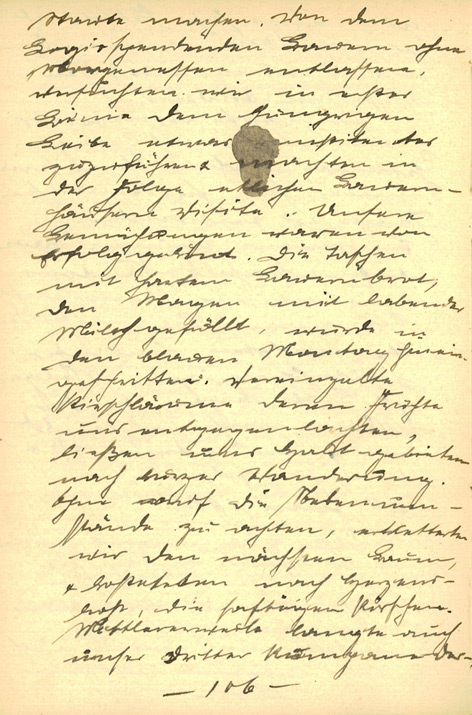 Staube machen. Von dem
Logisspendenden Bauern ohne
Morgenessen entlassen,
versuchten wir in erster
Linie dem hungrigen
Leibe etwas
zuzuführen & machten in
der Folge etlichen Bauern-
häusern Visite. Unsere
Bemühungen waren von
Erfolg gekrönt. Die Taschen
mit hartem Bauernbrot,
den Magen mit labender
Milch gefüllt, wurde in
den blauen Montag hinein-
geschritten. Vereinzelte
Kirschbäume deren Früchte
uns entgegenlachten,
ließen uns Halt gebieten
nach kurzer Wanderung.
Ohne auf die Nebenum-
stände zu achten, erkletterten
wir den nächsten Baum,
& kosteten nach Herzens-
lust, die saftigen Kirschen.
Mittlerweile langte auch
unser dritter Kumpane der-
- 106 -